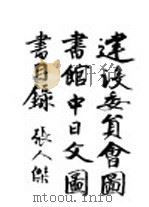 建設委員會圖
書館中日文圖
書目錄 張人傑
www.tooopu.info